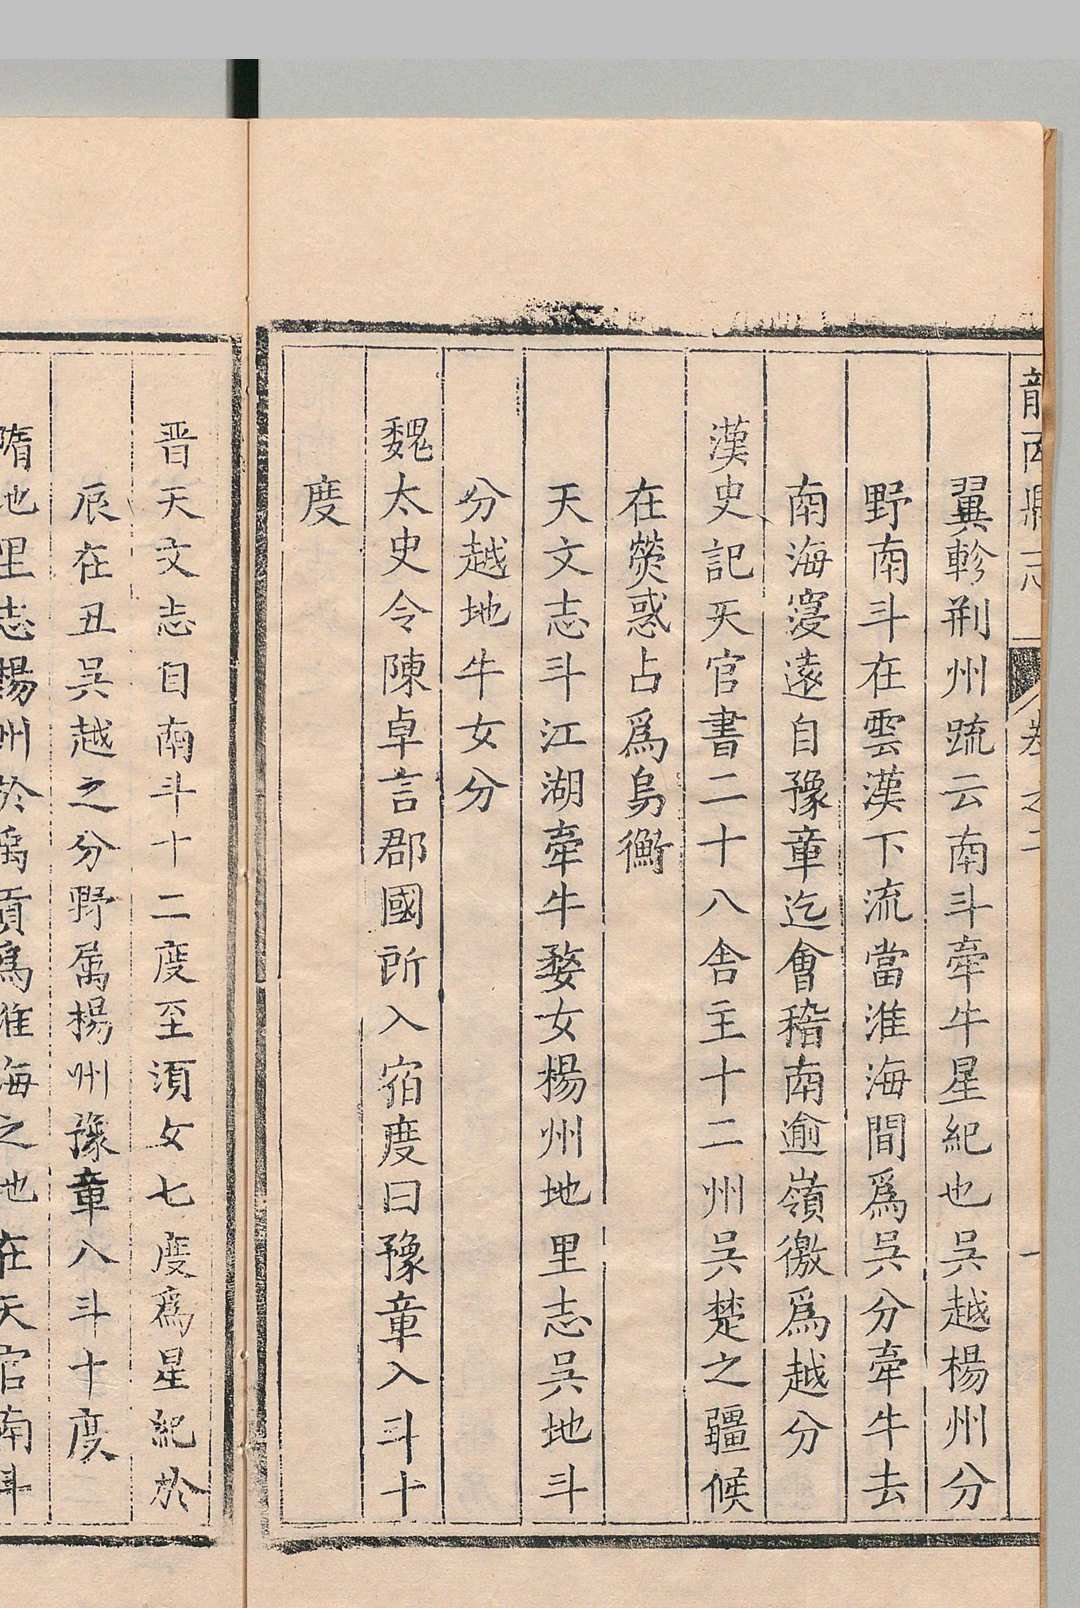 卷之二
一
翼軫荆州䟽云南斗牽牛星紀也吳越楊州分
野南斗在雲漢下流當淮海間爲吳分牽牛去
南海寖遠自豫章迄會稽南逾嶺徼爲越分
漢史記天官書二十八舎主十二州吳楚之疆候
在熒惑占爲鳥衡
天文志斗江湖牽牛婺女楊州地里志吳地斗
分越地牛女分
魏太史令陳卓言郡國所入宿度曰豫章入斗十
度
晋天文志自南斗十二度至須女七度爲星紀於
辰在丑吳越之分野属楊州豫章入斗十度
隋地里志楊州於禹貢爲淮海之地在天官南斗